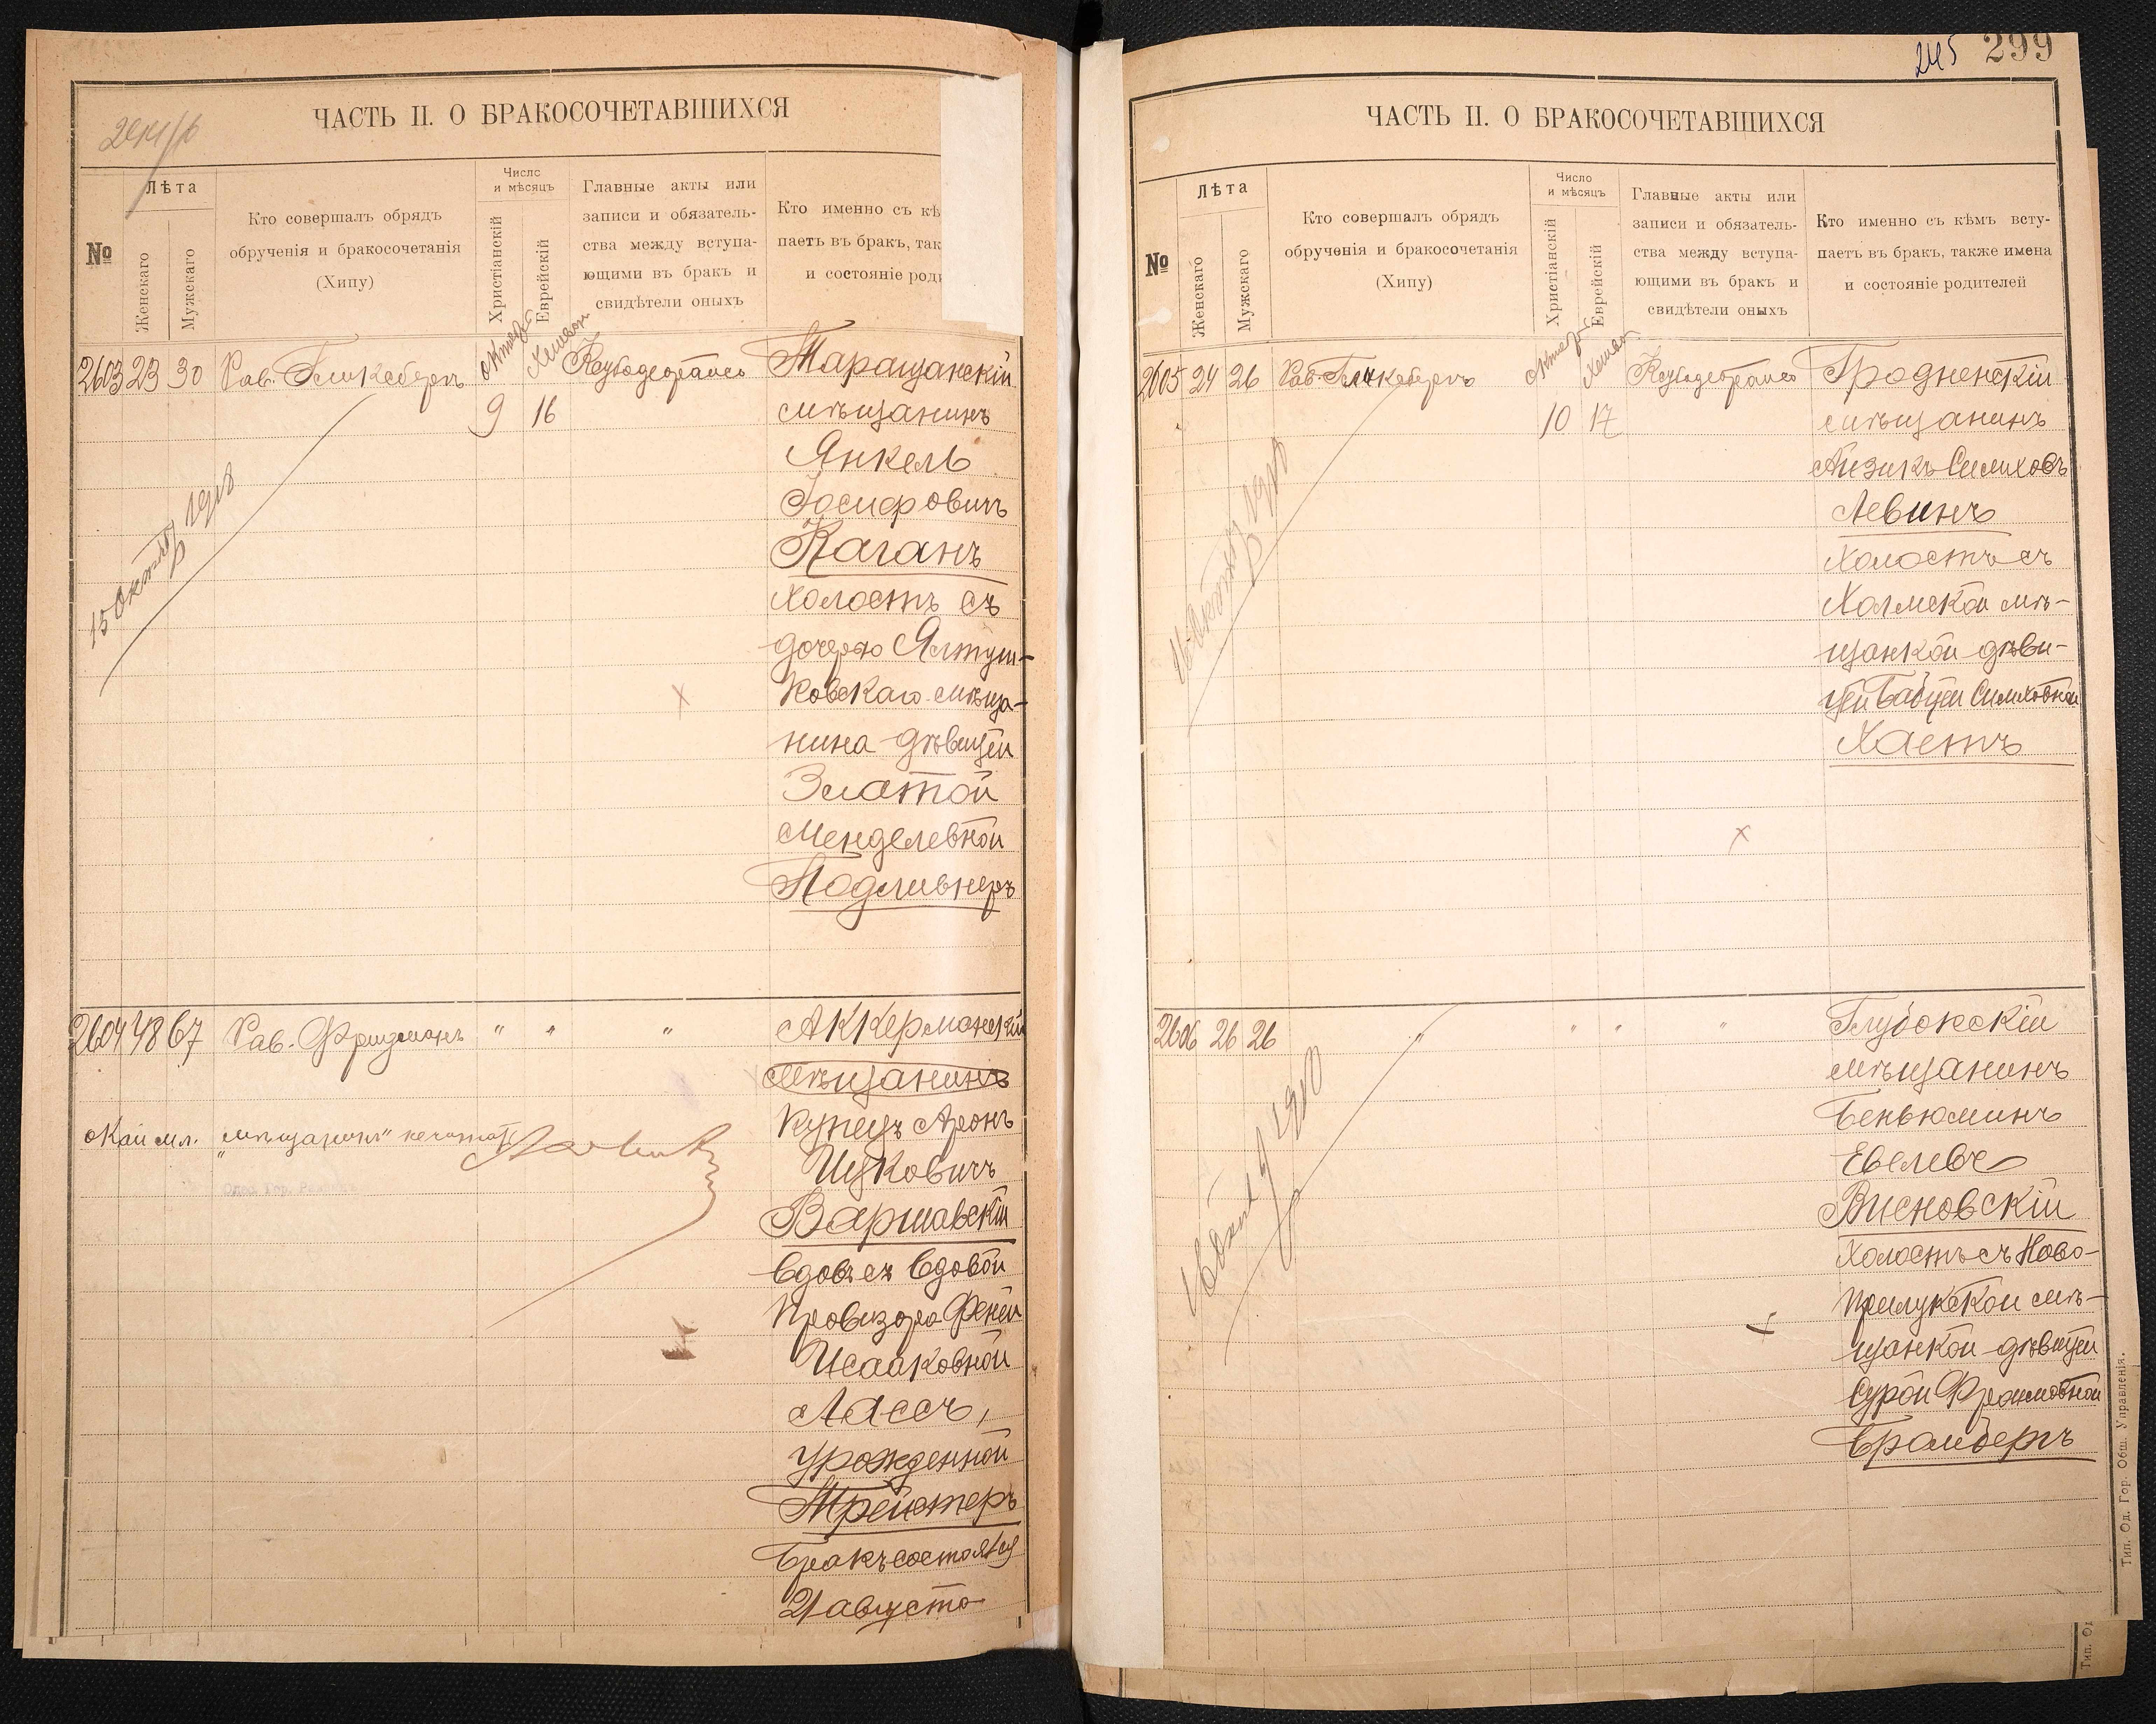 ЧАСТЬ II. О БРАКОСОЧЕТАВШИХСЯ
№
Лѣта
Женскаго
Мужскаго
Кто совершалъ обрядъ
обрученія и бракосочетанія
(Хипу)
Число
и мѣсяцъ
Христіанскій
Еврейскій
Главные акты или
записи и обязатель-
ства между вступа-
ющими въ бракъ и
свидѣтели оныхъ
Кто именно съ кѣ
паетъ въ бракъ, так
и состояніе роди
2603 23 30 Рав. Гликсбергъ
9 16
Таращанскій
мѣщанинъ
Янкель
Іосифовичъ
Каганъ
холостъ съ
дочерью Ялтуш-
ковскаго мѣща-
нина дѣвицей
Златой
Менделевной
Подливнеръ
15 Октября 1918
2604 48 67 Рав. Фридманъ " " "
Аккерманскій
мѣщанинъ
купецъ Аронъ
Ицковичъ
Варшавскій
вдовъ съ вдовой
провизора Феней
Исааковной
Лассъ,
урожденной
Трейстеръ
Бракъ состоялся
21 августа
"мѣщанинъ" не читать
ЧАСТЬ II. О БРАКОСОЧЕТАВШИХСЯ
245 299
№
Лѣта
Женскаго
Мужскаго
Кто совершалъ обрядъ
обрученія и бракосочетанія
(Хипу)
Число
и мѣсяцъ
Христіанскій
Еврейскій
Главные акты или
записи и обязатель-
ства между вступа-
ющими въ бракъ и
свидѣтели оныхъ
Кто именно съ кѣмъ всту-
паетъ въ бракъ, также имена
и состояніе родителей
2605 24 26 Рав. Гликсбергъ
10 17
Гродненскій
мѣщанинъ
Айзикъ Симховъ
Левинъ
холостъ съ
Холмской мѣ-
щанкой дѣви-
цей Бабцей Симховной
Хаетъ
2606 26 26 " " " "
Глубокскій
мѣщанинъ
Беньюминъ
Евелевъ
Висновскій
холостъ съ Ново-
прилукской мѣ-
щанкой дѣвицей
Сурой Фроимовной
Бромбергъ
Тип. Од. Гор. Общ. Управленія.